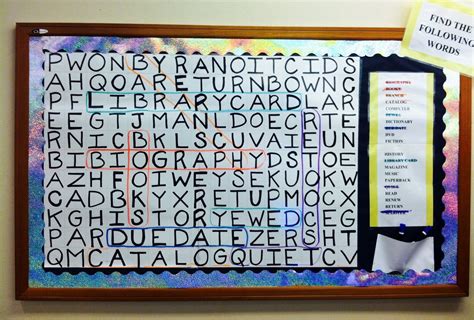 FIND THE
FOLLOWING
WORDS
PWONBYRANOITCIDS
AHQORETURNBOWNC
PFLIBRARYCARDLAR
FEGJMANLDOECRTE
RNICKLSCVAIEUN
BIBIOGRAPHYDSIOE
AZHFOIWEYSEKUOKW
CADBKYXRETUPMOCX
KGHISTORYEWEDCEG
PARDUEDATEZERSHT
QMCATALOGQUIETCV
BIOGRAPHY
BOOKS
BRANCH
CATALOG
COMPUTER
DEWEY
DICTIONARY
DUE DATE
DVD
FICTION
HISTORY
LIBRARY CARD
MAGAZINE
MUSIC
PAPERBACK
READ
RENEW
RETURN